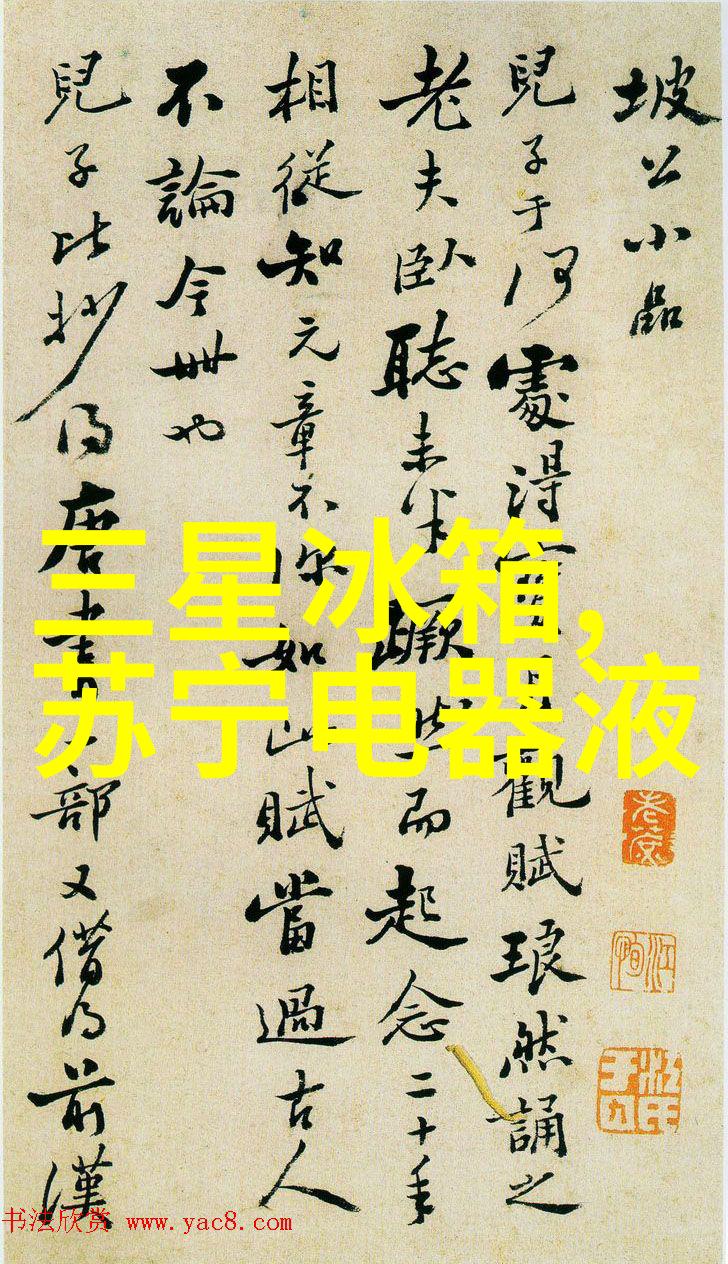 坡公小品
兒子于何處得寶月觀賦琅然誦之
老夫臥聽未半蹶然而起念二十年
相從知元章不盡如此賦當過古人
不論今世也
兒子比抄得唐書一部又借得前漢
三星冰箱,
苏宁电器液
老莲
书法欣赏 www.yac8.com